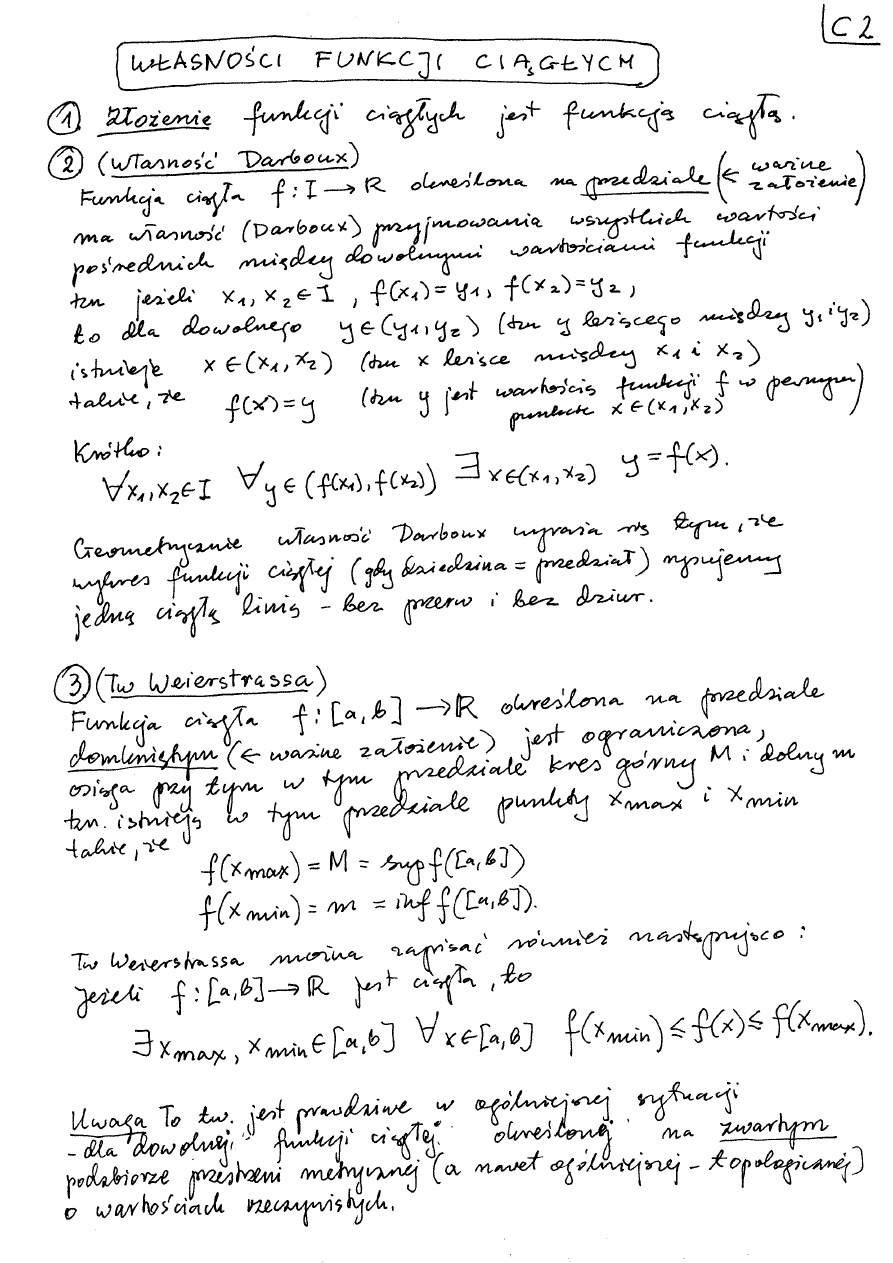 C2
WŁASNOŚCI FUNKCJI CIĄGŁYCH
① Złożenie funkcji ciągłych jest funkcją ciągłą.
② (Własność Darboux)
Funkcja ciągła f: I → ℝ określona na przedziale (← ważne założenie)
ma własność (Darboux) przyjmowania wszystkich wartości
pośrednich między dowolnymi wartościami funkcji
tzn jeżeli x₁, x₂ ∈ I, f(x₁)=y₁, f(x₂)=y₂,
to dla dowolnego y∈(y₁,y₂) (tzn y leżącego między y₁ i y₂)
istnieje x ∈ (x₁,x₂) (tzn x leżące między x₁ i x₂)
takie, że f(x)=y (tzn y jest wartością funkcji f w pewnym
punkcie x∈(x₁,x₂))
Krótko:
∀x₁,x₂∈I ∀y∈(f(x₁),f(x₂)) ∃x∈(x₁,x₂) y=f(x).
Geometrycznie własność Darboux wyraża się tym, że
wykres funkcji ciągłej (gdy dziedzina = przedział) rysujemy
jedną ciągłą linią - bez przerw i bez dziur.
③ (Tw Weierstrassa)
Funkcja ciągła f: [a,b] → ℝ określona na przedziale
domkniętym (← ważne założenie) jest ograniczona,
osiąga przy tym w tym przedziale kres górny M i dolny m
tzn. istnieją w tym przedziale punkty xmax i xmin
takie, że
f(xmax) = M = sup f([a,b])
f(xmin) = m = inf f([a,b]).
Tw Weierstrassa można zapisać również następująco:
Jeżeli f: [a,b] → ℝ jest ciągła, to
∃xmax, xmin∈[a,b] ∀x∈[a,b] f(xmin) ≤ f(x) ≤ f(xmax).
Uwaga To tw. jest prawdziwe w ogólniejszej sytuacji
- dla dowolnej funkcji ciągłej określonej na zwartym
podzbiorze przestrzeni metrycznej (a nawet ogólniejszej - topologicznej)
o wartościach rzeczywistych.